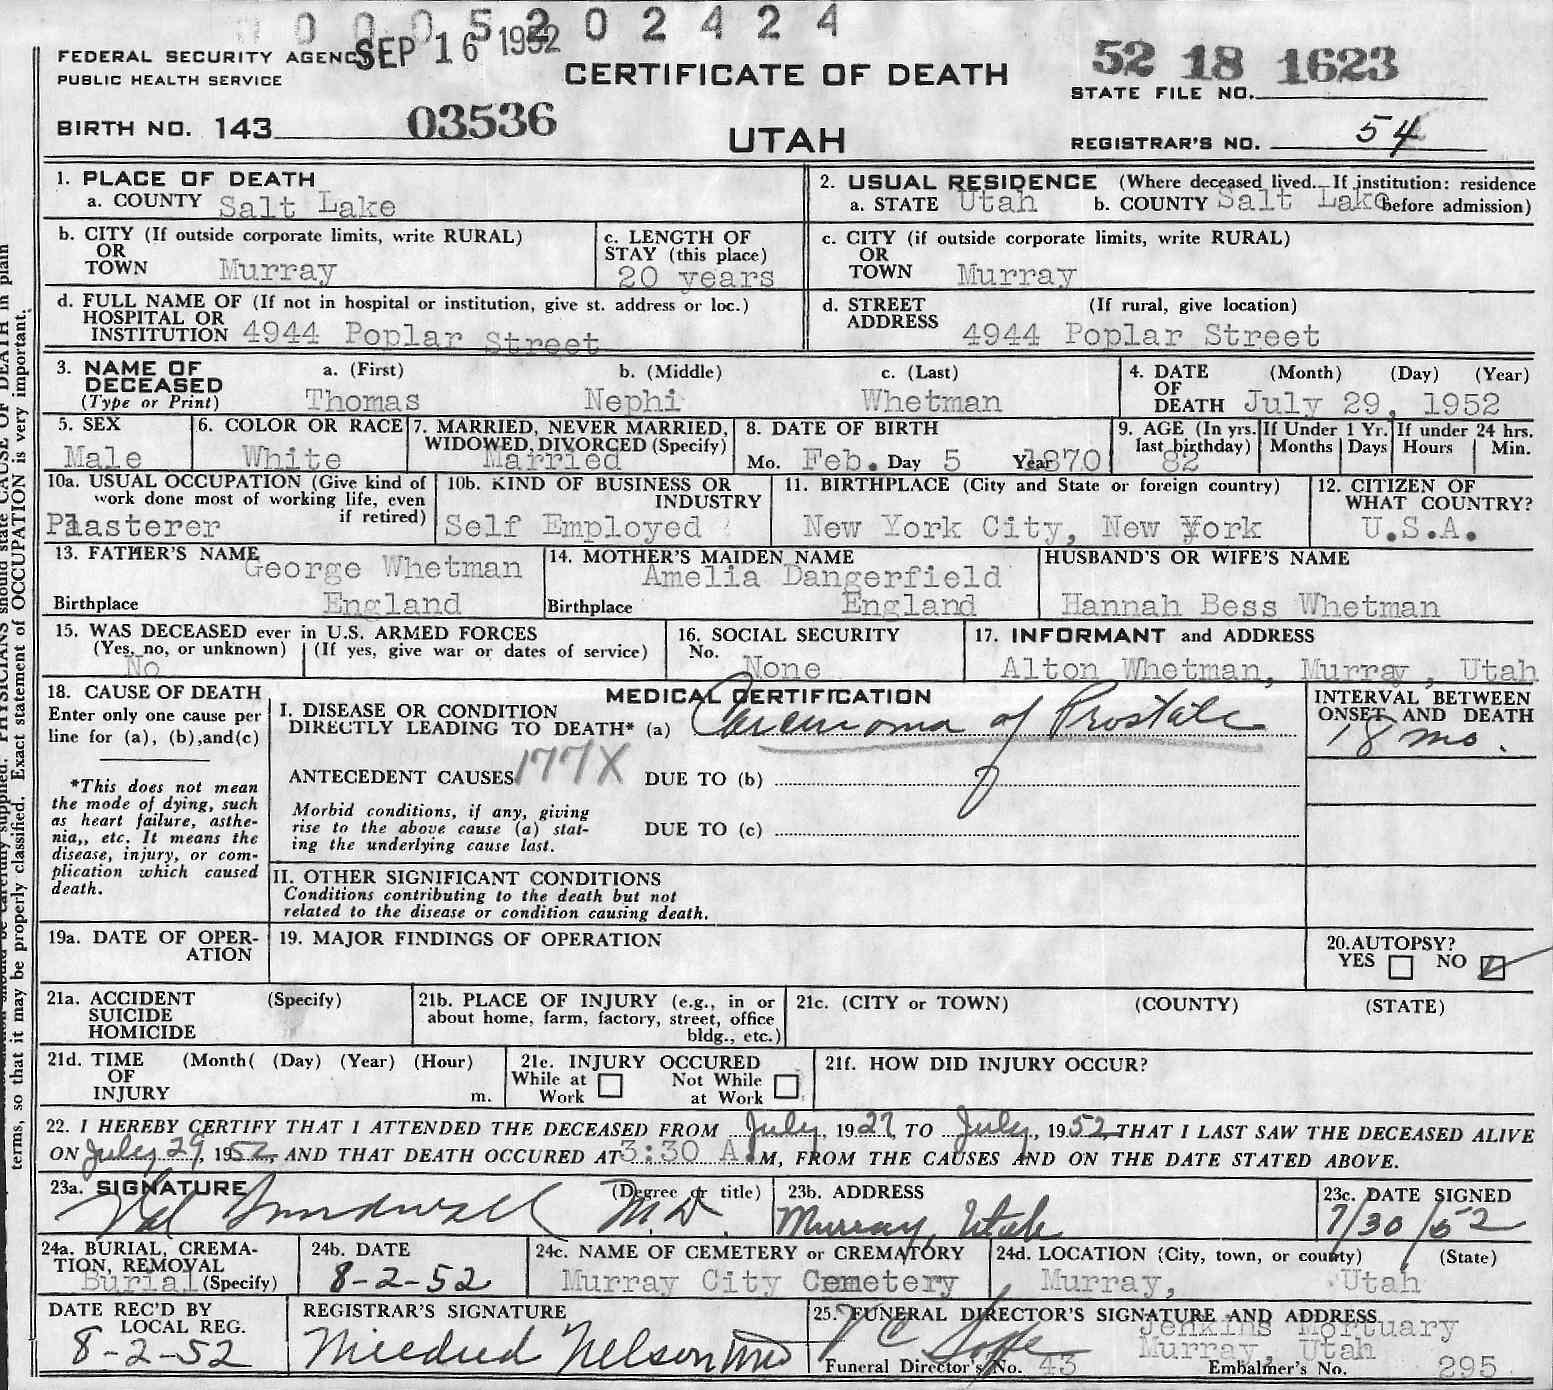 0 0 0 5 2 0 2 4 2 4
SEP 16 1952
FEDERAL SECURITY AGENCY
PUBLIC HEALTH SERVICE
CERTIFICATE OF DEATH
52 18 1623
STATE FILE NO.
BIRTH NO. 143 03536
UTAH
REGISTRAR'S NO. 54
1. PLACE OF DEATH
a. COUNTY Salt Lake
2. USUAL RESIDENCE (Where deceased lived. If institution: residence
a. STATE Utah b. COUNTY Salt Lake before admission)
b. CITY (If outside corporate limits, write RURAL)
OR
TOWN Murray
c. LENGTH OF
STAY (this place)
20 years
c. CITY (if outside corporate limits, write RURAL)
OR
TOWN Murray
d. FULL NAME OF (If not in hospital or institution, give st. address or loc.)
HOSPITAL OR
INSTITUTION 4944 Poplar Street
d. STREET (If rural, give location)
ADDRESS 4944 Poplar Street
3. NAME OF DECEASED
(Type or Print)
a. (First) b. (Middle) c. (Last)
Thomas Nephi Whetman
4. DATE (Month) (Day) (Year)
OF
DEATH July 29, 1952
5. SEX
Male
6. COLOR OR RACE
White
7. MARRIED, NEVER MARRIED,
WIDOWED, DIVORCED (Specify)
Married
8. DATE OF BIRTH
Mo. Feb. Day 5 Year 1870
9. AGE (In yrs. last birthday)
82
If Under 1 Yr.
Months Days
If under 24 hrs.
Hours Min.
10a. USUAL OCCUPATION (Give kind of
work done most of working life, even
if retired)
Plasterer
10b. KIND OF BUSINESS OR
INDUSTRY
Self Employed
11. BIRTHPLACE (City and State or foreign country)
New York City, New York
12. CITIZEN OF
WHAT COUNTRY?
U.S.A.
13. FATHER'S NAME
George Whetman
Birthplace England
14. MOTHER'S MAIDEN NAME
Amelia Dangerfield
Birthplace England
HUSBAND'S OR WIFE'S NAME
Hannah Bess Whetman
15. WAS DECEASED ever in U.S. ARMED FORCES
(Yes, no, or unknown) (If yes, give war or dates of service)
No
16. SOCIAL SECURITY
No.
None
17. INFORMANT and ADDRESS
Alton Whetman, Murray, Utah
18. CAUSE OF DEATH
Enter only one cause per
line for (a), (b),and(c)
*This does not mean
the mode of dying, such
as heart failure, asthe-
nia,, etc. It means the
disease, injury, or com-
plication which caused
death.
MEDICAL CERTIFICATION
I. DISEASE OR CONDITION
DIRECTLY LEADING TO DEATH* (a) Carcinoma of Prostate
INTERVAL BETWEEN
ONSET AND DEATH
18 mo.
ANTECEDENT CAUSES 177X DUE TO (b)
Morbid conditions, if any, giving
rise to the above cause (a) stat-
ing the underlying cause last.
DUE TO (c)
II. OTHER SIGNIFICANT CONDITIONS
Conditions contributing to the death but not
related to the disease or condition causing death.
19a. DATE OF OPER-
ATION
19. MAJOR FINDINGS OF OPERATION
20.AUTOPSY?
YES NO
21a. ACCIDENT (Specify)
SUICIDE
HOMICIDE
21b. PLACE OF INJURY (e.g., in or
about home, farm, factory, street, office
bldg., etc.)
21c. (CITY or TOWN) (COUNTY) (STATE)
21d. TIME (Month( (Day) (Year) (Hour)
OF
INJURY m.
21e. INJURY OCCURED
While at Work Not While at Work
21f. HOW DID INJURY OCCUR?
22. I HEREBY CERTIFY THAT I ATTENDED THE DECEASED FROM July, 1927, TO July, 1952 THAT I LAST SAW THE DECEASED ALIVE
ON July 29, 1952, AND THAT DEATH OCCURED AT 3:30 A.M, FROM THE CAUSES AND ON THE DATE STATED ABOVE.
23a. SIGNATURE (Degree or title)
Val Sundwall M.D.
23b. ADDRESS
Murray, Utah
23c. DATE SIGNED
7/30/52
24a. BURIAL, CREMA-
TION, REMOVAL
Burial (Specify)
24b. DATE
8-2-52
24c. NAME OF CEMETERY or CREMATORY
Murray City Cemetery
24d. LOCATION (City, town, or county) (State)
Murray, Utah
DATE REC'D BY
LOCAL REG.
8-2-52
REGISTRAR'S SIGNATURE
Mildred Nelson
25. FUNERAL DIRECTOR'S SIGNATURE AND ADDRESS
Jenkins Mortuary
Murray, Utah
Funeral Director's No. 43 Embalmer's No. 295
terms, so that it may be properly classified. Exact statement of OCCUPATION is very important.